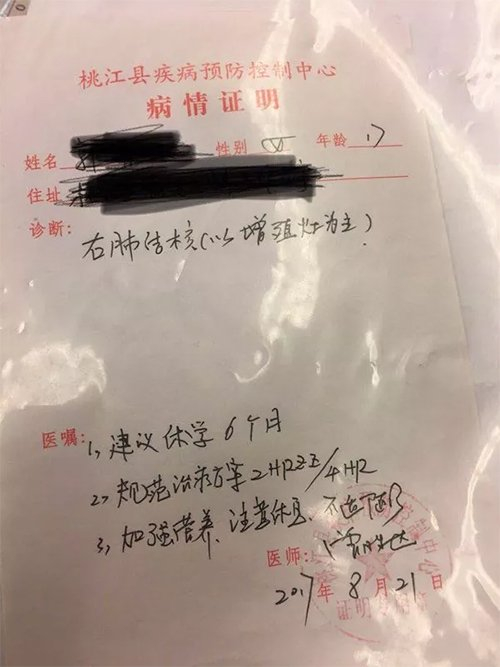 桃江县疾病预防控制中心
病情证明
姓名 性别 年龄 17
住址
诊断:
右肺结核(以增殖灶为主)
医嘱: 1, 建议休学6个月
2, 规范治疗方案2HRZE/4HR
3, 加强营养、注意休息、不适随诊
医师:
2017年8月21日
证明专用章